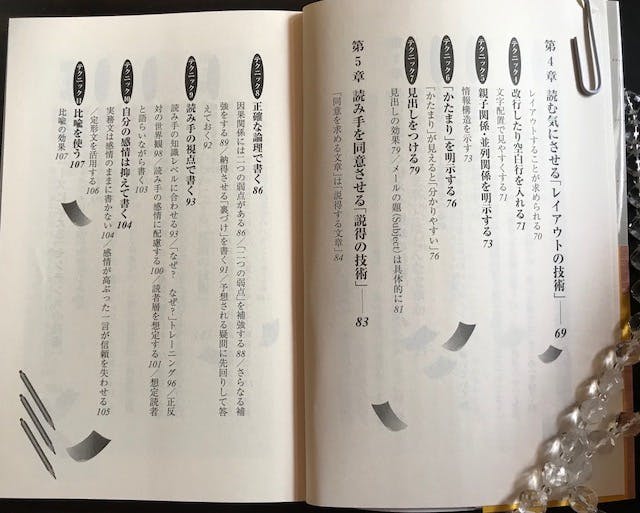 第4章 読む気にさせる「レイアウトの技術」——69
レイアウトすることが求められる 70
テクニック4 改行したり空白行を入れる 71
文字配置で見やすくする 71
テクニック5 親子関係・並列関係を明示する 73
情報構造を示す 73
テクニック6 「かたまり」を明示する 76
「かたまり」が見えると「分かりやすい」 76
テクニック7 見出しをつける 79
見出しの効果 79/メールの題(Subject)は具体的に 81
第5章 読み手を同意させる「説得の技術」——83
「同意を求める文章」は「説得する文章」 84
テクニック8 正確な論理で書く 86
因果関係には二つの弱点がある 86/「二つの弱点」を補強する 88/さらなる補
強をする 89/納得させる「裏づけ」を書く 91/予想される疑問に先回りして答
えておく 92
テクニック9 読み手の視点で書く 93
読み手の知識レベルに合わせる 93/「なぜ? なぜ?」トレーニング 96/正反
対の世界観 98/読み手の感情に配慮する 100/読者層を想定する 101/想定読者
と語らいながら書く 103
テクニック10 自分の感情は抑えて書く 104
実務文は感情のままに書かない 104/感情が高ぶった一言が信頼を失わせる 105
/定形文を活用する 106
テクニック11 比喩を使う 107
比喩の効果 107